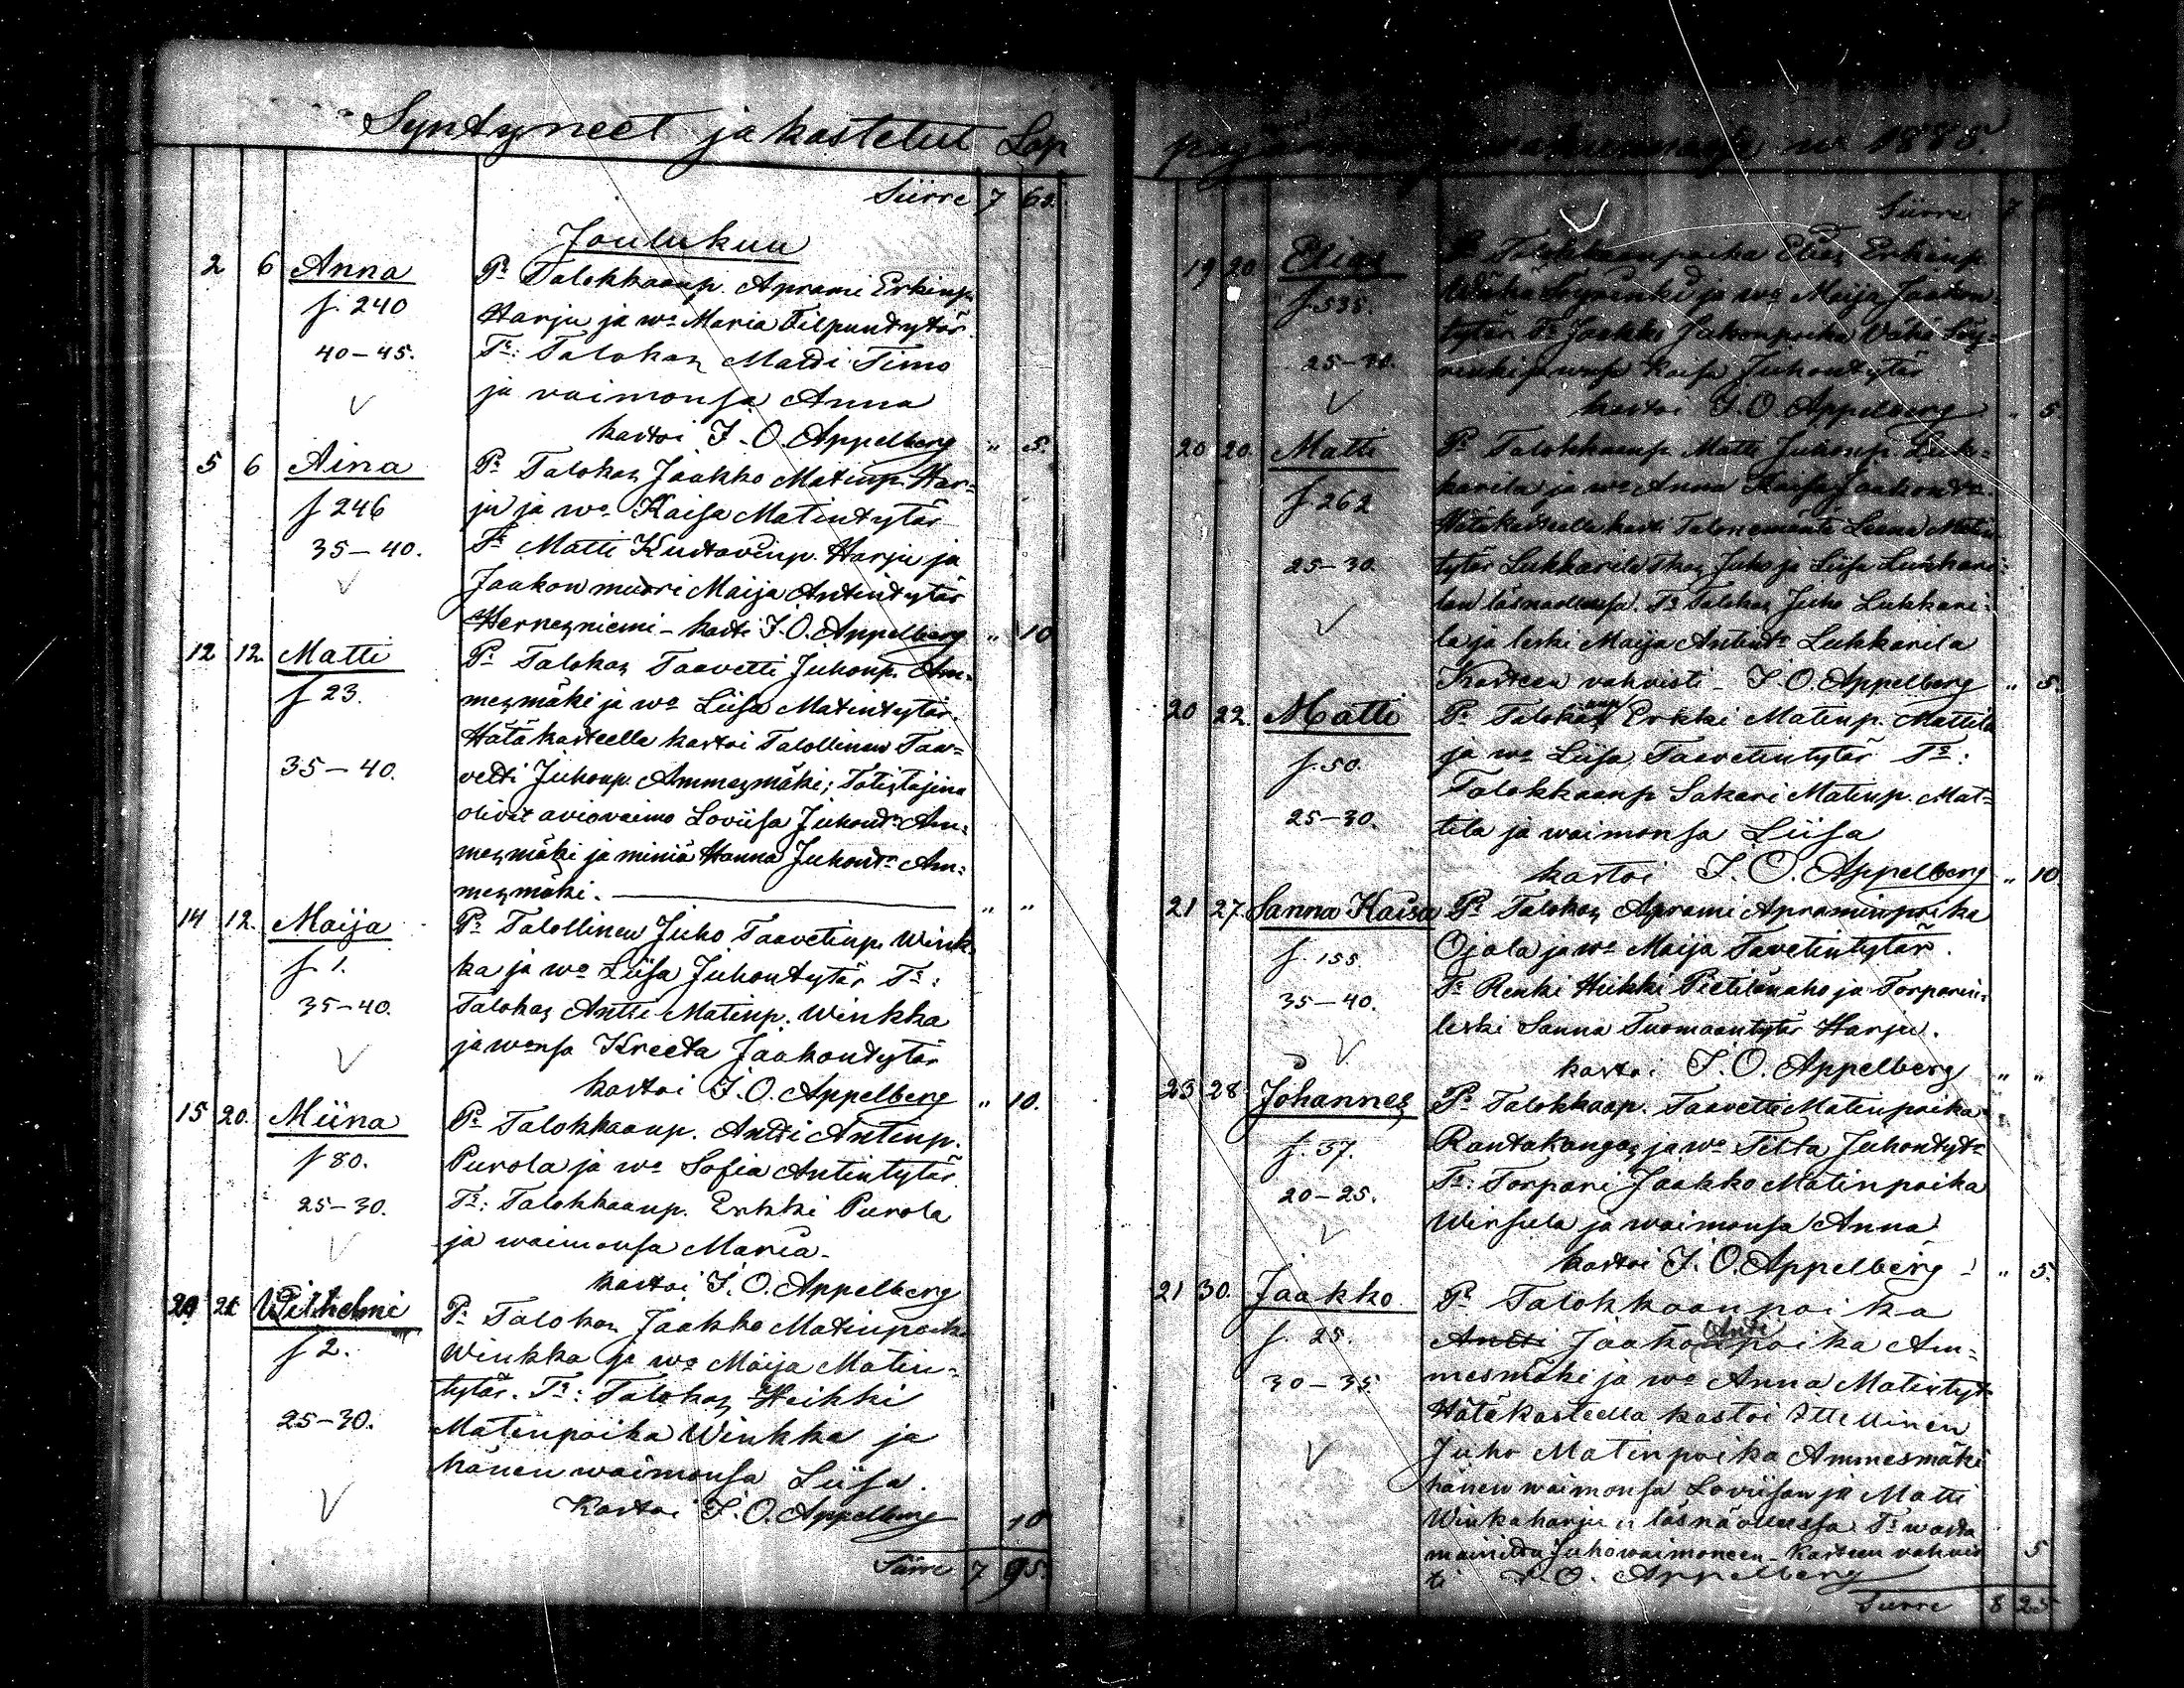 Syntyneet ja kastetut Lap
Siirre 7 60.
Joulukuu
2 6 Anna Pr Talokkaanp. Aprami Erkinp.
f. 240 Harju ja wo Maria Filpuntytär.
40–45. Tr: Talokas Matti Timo
ja vaimonsa Anna
kastoi J. O. Appelberg " 5.
5 6 Aina Pr Talokas Jaakko Matinp. Har=
f 246 ju ja wo Kaisa Matintytär
35–40. Tr Matti Kustavinp. Harju ja
Jaakon muori Maija Antintytär
Hernesniemi – kasti J. O. Appelberg " 10
12 12. Matti Pr Talokas Taavetti Juhonp. Am=
f 23. mesmäki ja wo Liisa Matintytär.
Hätäkasteella kastoi Talollinen Taa=
35–40. vetti Juhonp. Ammesmäki; Totistajina
olivat aviovaimo Loviisa Juhontr Am=
mesmäki ja miniä Hanna Juhontr Am=
mesmäki. " "
14 12. Maija Pr Talollinen Juho Taavetinp. Wink=
f. 1. ka ja wo Liisa Juhontytär Tr:
35–40. Talokas Antti Matinp. Winkka
ja wonsa Kreeta Jaakontytär
kastoi J. O. Appelberg " 10.
15 20. Miina Pr Talokkaanp. Antti Antinp.
f 80. Purola ja wo Sofia Antintytär.
25–30. Tr: Talokkaanp. Erkki Purola
ja waimonsa Maria.
kastoi J. O. Appelberg
21 Wilhelmi Pr Talokas Jaakko Matinpoika
f 2. Winkka ja wo Maija Matin=
tytär. Tr: Talokas Heikki
25–30. Matinpoika Winkka ja
hänen waimonsa Liisa.
Kastoi J. O. Appelberg 10
Siirre 7 95.
w. 1885.
Siirre 7
19 20 Elias Pr Talokkaanpoika Elias Erkinp.
f. 535. Wähä Söyrinki ja wo Maija Jaakon=
tytär Tr Jaakko Jakonpoika Vähä Söy=
25–30. rinki ja wnsa Kaisa Juhontytär
kastoi J. O. Appelberg " 5
20 20. Matti Pr Talokkaanp. Matti Juhonp. Luk=
f 262 karila ja wo Anna Kaisa Jaakontr.
Hätäkasteella kasti Talonemäntä Leena Matin
25–30. tytär Lukkarila Juho ja Liisa Lukkari=
lan läsnäollessa. Tr Talokas Juho Lukkari=
la ja leski Maija Antintr Lukkarila
Kasteen vahvisti – J. O. Appelberg " 5.
20 22. Matti Pr Talokas Erkki Matinp. Mattila
f. 50. ja wo Liisa Taavetintytär Tr:
Talokkaanp Sakari Matinp. Mat=
25–30. tila ja waimonsa Liisa
kastoi J. O. Appelberg " 10
21 27 Sanna Kaisa Pr Talokas Aprami Apraminpoika
f. 155. Ojala ja wo Maija Tavetintytär.
35–40. Tr Renki Heikki Pietilänaho ja Torparin=
leski Sanna Tuomaantytär Harju.
kastoi J. O. Appelberg " "
23 28. Johannes Pr Talokkaap. Taavetti Matinpoika
f. 37. Rantakangas ja wo Tilta Juhontytr
20–25. Tr: Torpari Jaakko Matinpoika
Wirsula ja waimonsa Anna
kastoi J. O. Appelberg " 5.
21 30. Jaakko Pr Talokkaanpoika
f. 25. Antti Jaakonpoika Am=
30–35 mesmäki ja wo Anna Matintytr
Hätäkasteella kastoi Itellinen
Juho Matinpoika Ammesmäki
hänen waimonsa Loviisan ja Matti
Winkaharju läsnäollessa Tr wasta
mainittu Juho waimoneen – Kasteen vahvis 5
ti J. O. Appelberg
Siirre 8 25